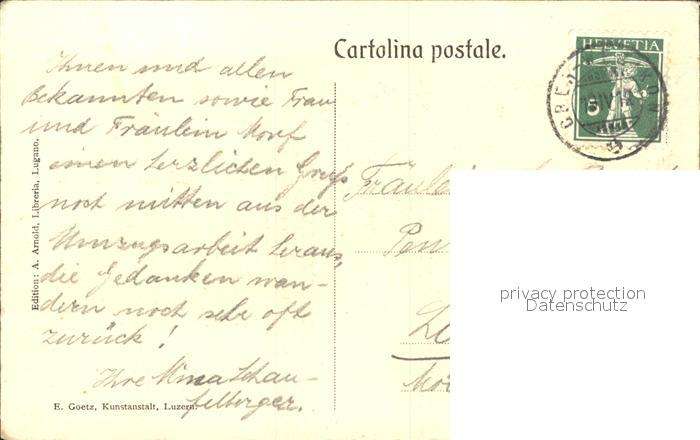 Cartolina postale.
HELVETIA
5
Ihnen und allen
Bekannten sowie Frau
und Fräulein Morf
einen herzlichen Gruß
noch mitten aus der
Umzugsarbeit heraus,
die Gedanken wan-
dern noch sehr oft
zurück!
Ihre Mina Schau-
felberger.
Fräulein
Pen
Edition: A. Arnold, Libreria, Lugano.
E. Goetz, Kunstanstalt, Luzern.
privacy protection
Datenschutz